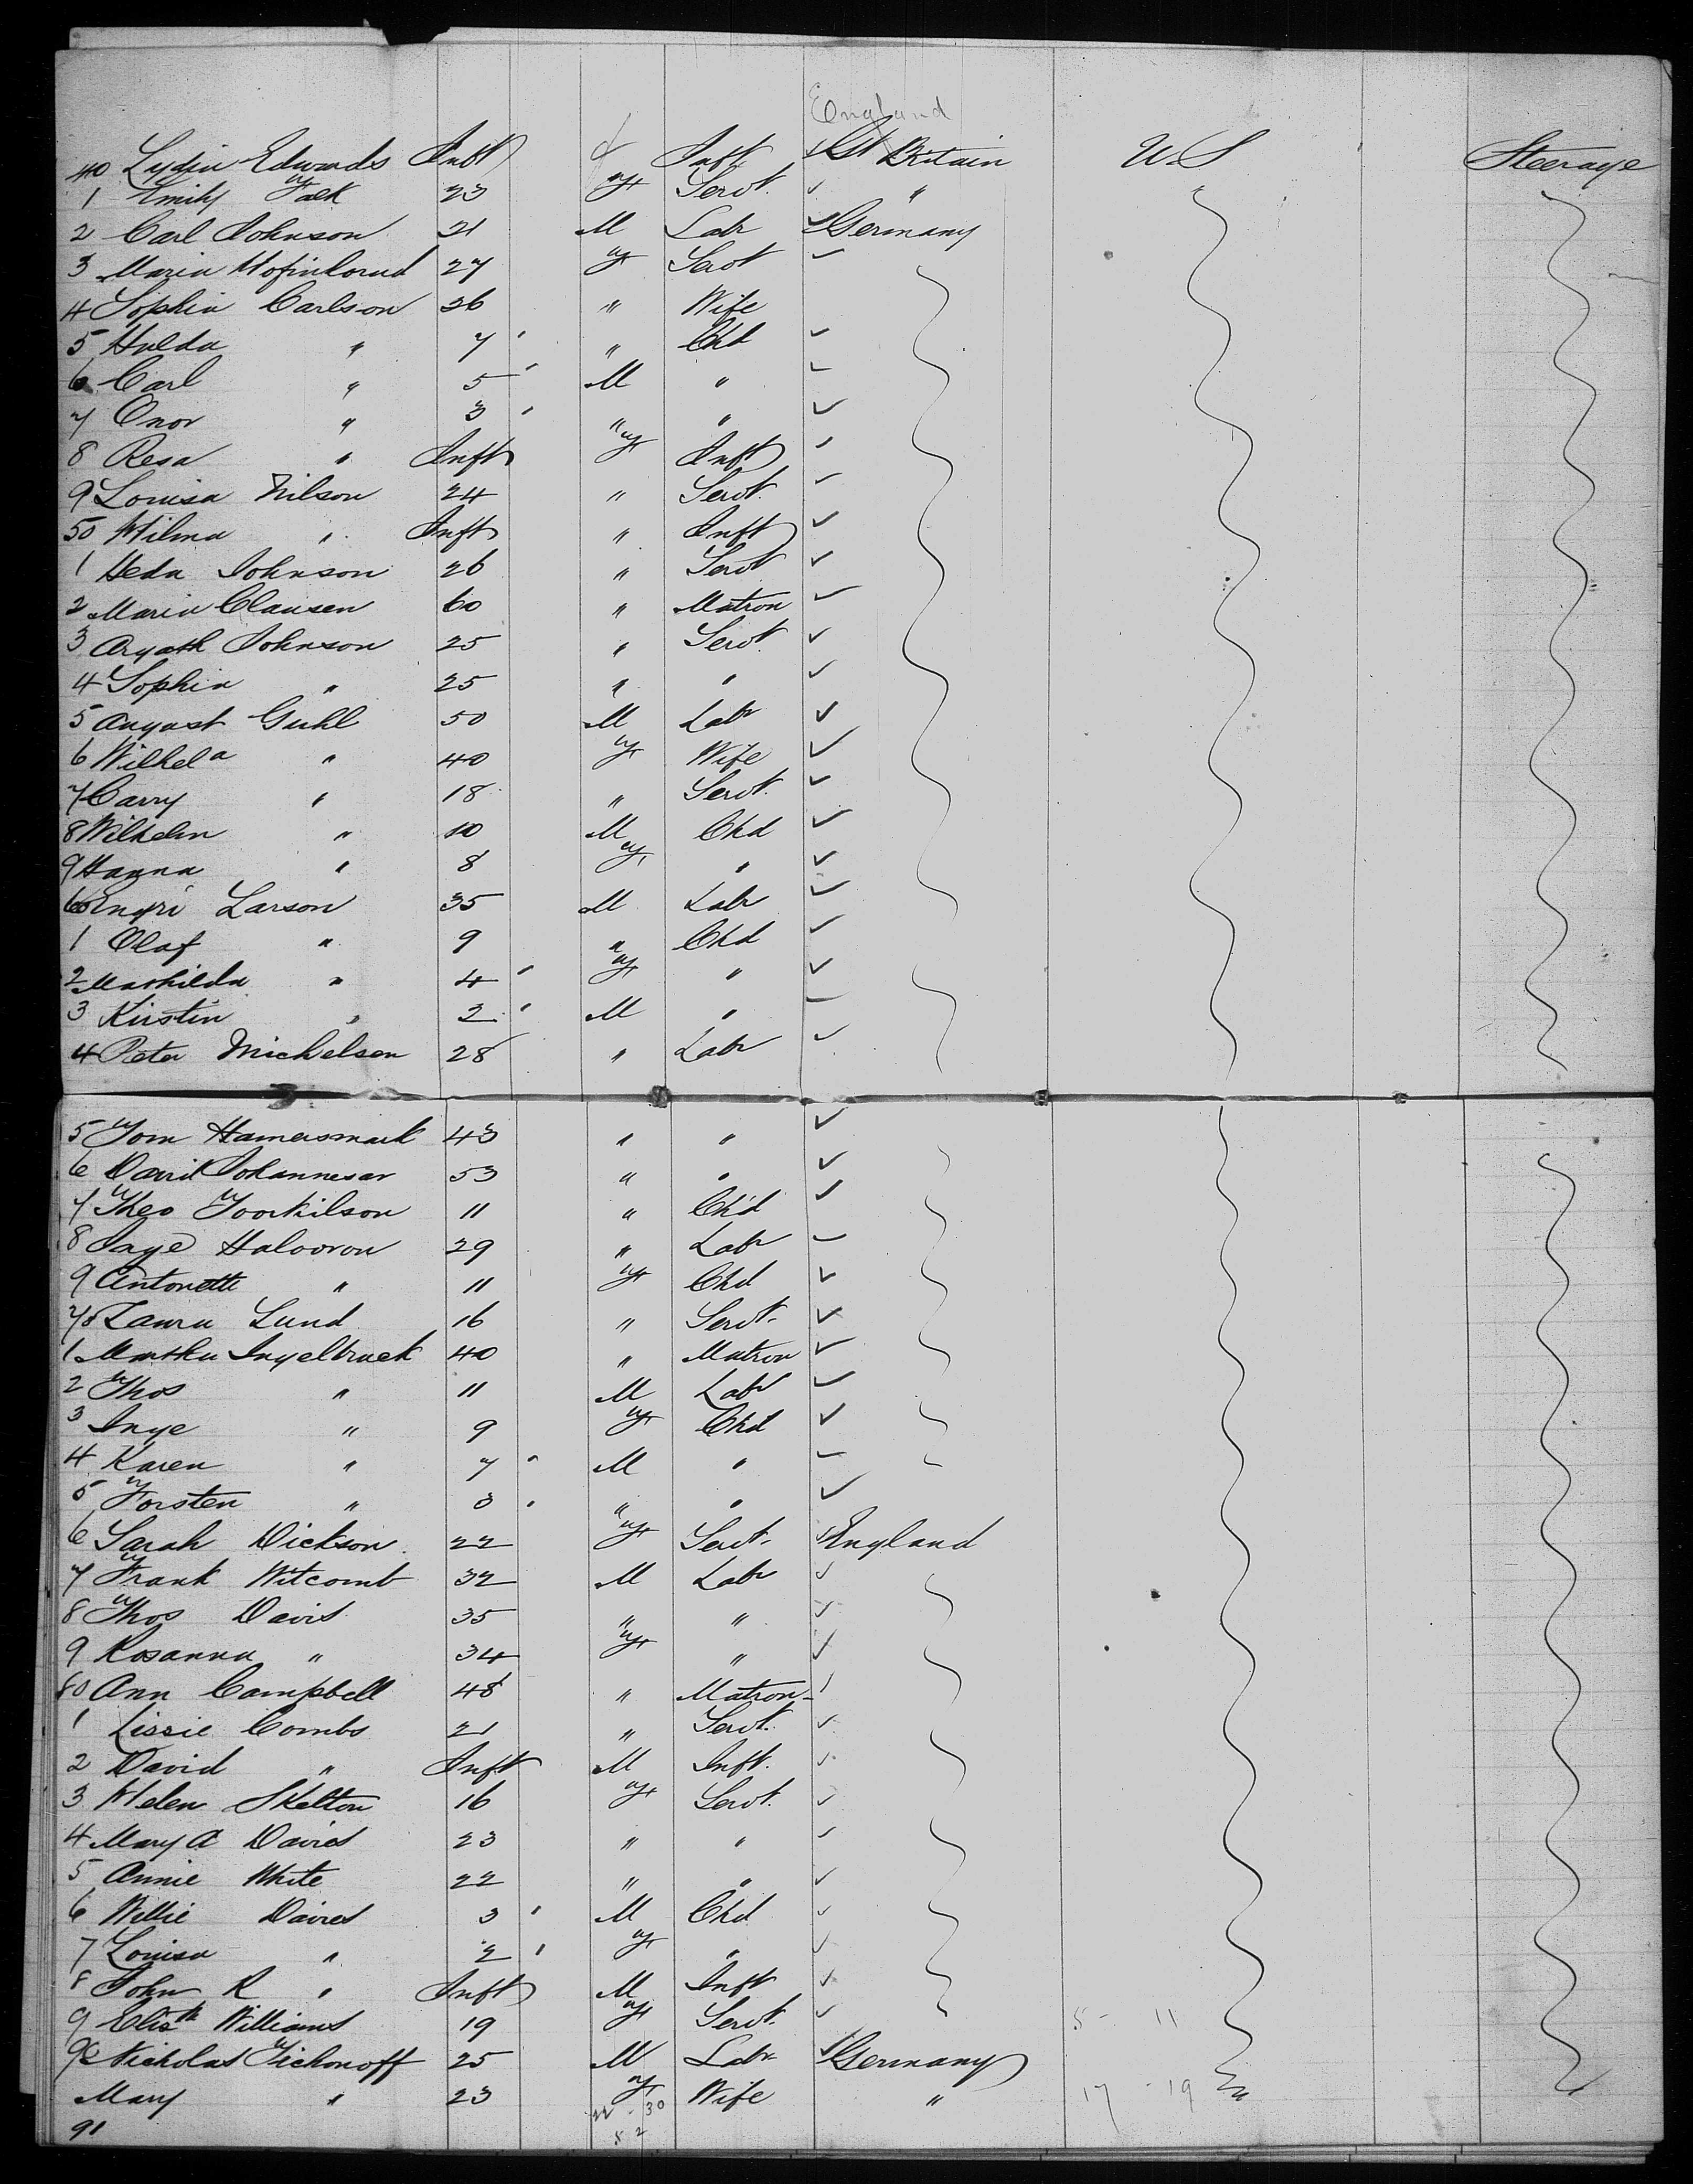 England
40 Lydia Edwards Inft f Inft Gt Britain U.S Steerage
1 Emily Falk 23 F Servt " "
2 Carl Johnson 21 M Labr Germany
3 Maria 27 F Servt
4 Sophia Carlson 26 " Wife
5 Hulda " 7 " Chd
6 Carl " 5 M "
7 Onor " 3 " "
8 Resa " Inft F Inft
9 Louisa Nilson 24 " Servt
50 Wilma " Inft " Inft
1 Heda Johnson 26 " Servt
2 Maria Clausen 60 " Matron
3 Johnson 25 " Servt
4 Sophia " 25 " "
5 August Guhl 50 M Labr
6 Wilhela " 40 F Wife
7 Carry " 18 " Servt
8 Wilhelm " 10 M Chd
9 Hanna " 8 F "
60 Engri Larson 35 M Labr
1 Olaf " 9 " Chd
2 Mathilda " 4 F "
3 Kirstin " 2 M "
4 Peter Michelsen 28 " Labr
5 Tom Hamersmark 43 " "
6 David Johannesen 53 " "
7 Theo Toorkilson 11 " Chd
8 Halvoron 29 " Labr
9 Antonette " 11 F Chd
70 Laura Lund 16 " Servt
1 Martha Ingelbruck 40 " Matron
2 Thos " 11 M Labr
3 Inge " 9 F Chd
4 Karen " 7 M "
5 Torsten " 3 " "
6 Sarah Dickson 22 F Servt England
7 Frank Witcomb 32 M Labr
8 Thos Davis 35 " "
9 Rosanna " 34 F "
80 Ann Campbell 48 " Matron
1 Lissie Combs 21 " Servt
2 David " Inft M Inft
3 Helen Skelton 16 F Servt
4 Mary A Davies 23 " "
5 Annie White 22 " "
6 Willie Davies 3 M Chd
7 Louisa " 2 F "
8 John R " Inft M Inft
9 Elisth Williams 19 F Servt 5 - 11
90 Nicholas Tichonoff 25 M Labr Germany
Mary " 23 F Wife " 17 - 19 "
91 22 - 30
5 2